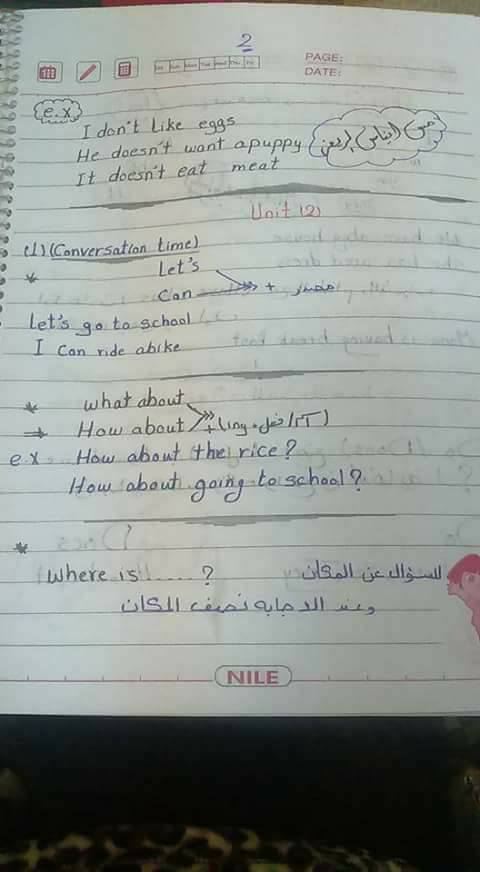 2
PAGE:
DATE:
e.x
I don't Like eggs
He doesn't want a puppy
It doesn't eat meat
Unit (2)
(1) (Conversation time)
* Let's
Can + مصدر
Let's go to school
I Can ride abike
* what about
⇒ How about + (ing + فعل / اسم)
e.x How about the rice?
How about going to school?
*
where is ......? للسؤال عن المكان
وعند الاجابه نصف المكان
NILE